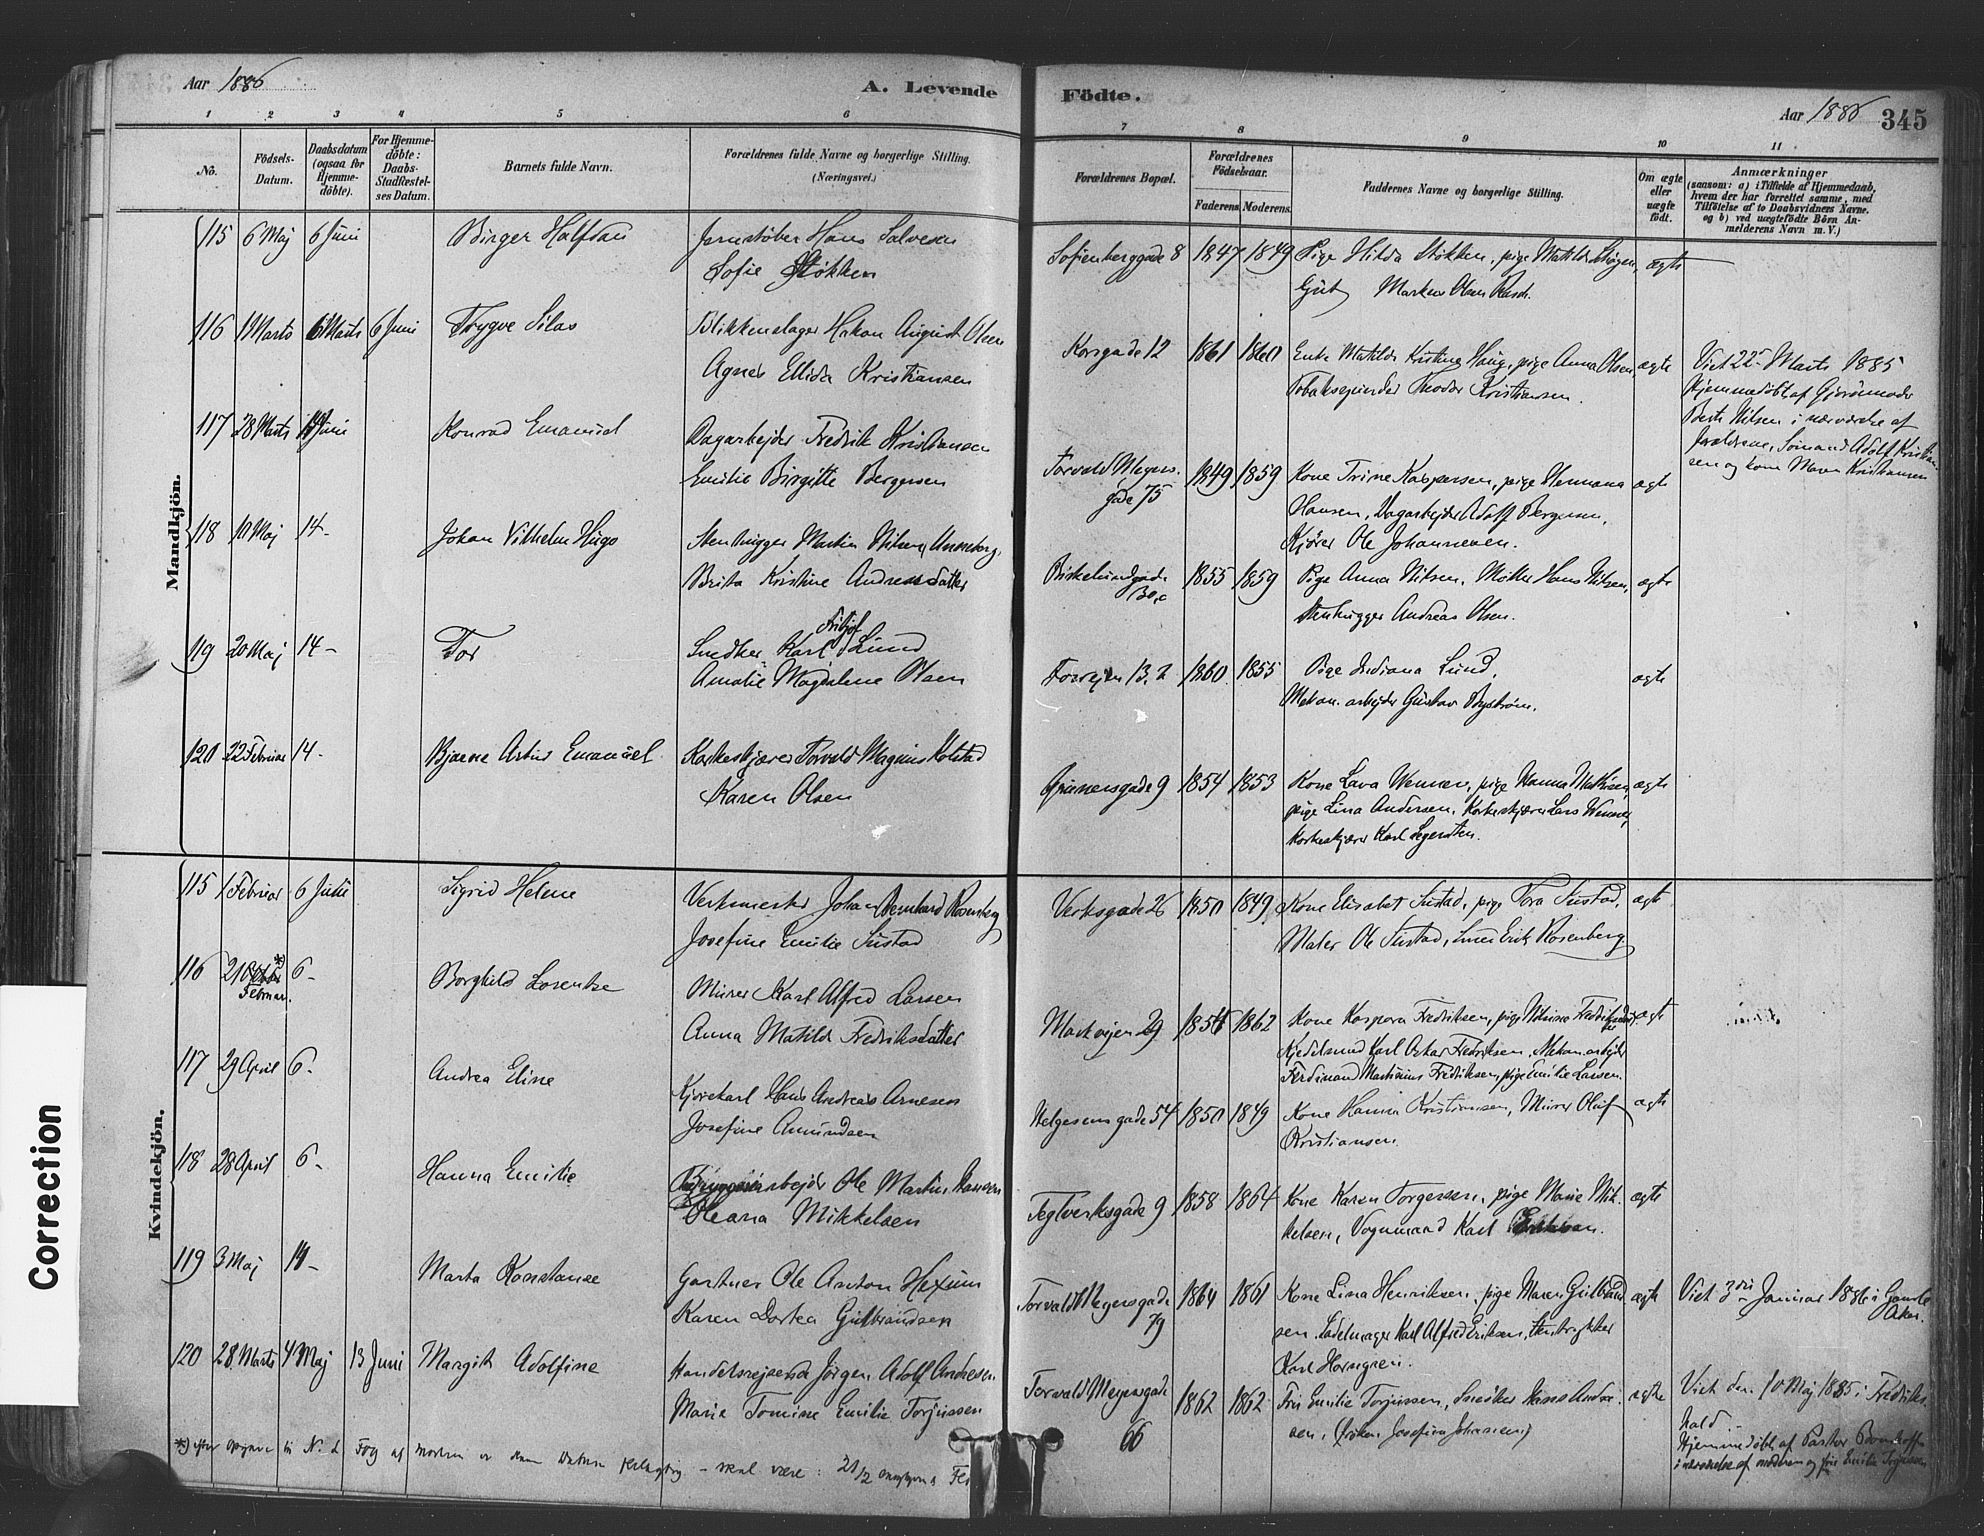 Aar 1886
A. Levende
Födte.
Aar 1886
345
1 2 3 4 5 6 7 8 9 10 11
No.
Födsels-
Datum.
Daabsdatum
(ogsaa for
Hjemme-
döbte).
For Hjemme-
döbte:
Daabs-
Stadfæstel-
ses Datum.
Barnets fulde Navn.
Forældrenes fulde Navne og borgerlige Stilling.
(Næringsvei.)
Forældrenes Bopæl.
Forældrenes
Födselsaar.
Faderens. Moderens.
Faddernes Navne og borgerlige Stilling.
Om ægte
eller
uægte
født.
Anmærkninger
(saasom: a) i Tilfælde af Hjemmedaab,
hvem der har forrettet samme, med
Tilföielse af to Daabsvidners Navne.
og b) ved uægtefödte Börn An-
melderens Navn m. V.)
Mandkjön.
115 6 Maj 6 Juni Birger Halfdan Jernstøber Hans Salvesen
Sofie Støkken
Sofienberggade 8 1847 1849 Pige Hilda Støkken, pige Matilde
Markus Olsen ægte
116 Marts 6 Marts 6 Juni Trygve Silas Blikkenslager Hakon August Olsen
Agnes Ellida Kristiansen
Korsgade 12 1861 1860 Enke Matilde Kristine Haug, pige Anna Olsen, ægte
Tobakspinder Teodor Kristiansen.
Viet 22 Marts 1885
Hjemmedøbt af Gjormoder
Nilsen i nærværelse af
forældrene, Sømand Adolf Kristian-
sen og kone Maren Kristiansen
117 28 Marts Juni Konrad Emanuel Dagarbejder Fredrik Kristiansen
Emilie Birgitte Bergersen
Torvald Meyers-
gade 75 1849 1859 Kone Trine Kaspersen, pige Hermana ægte
Hansen, Dagarbejder Adolf Bergersen,
Kjører Ole Johannesen.
118 Maj 14- Johan Vilhelm Hugo Stenhugger Martin Nilsen
Brita Kristine Andreasdatter
Birkelundgade
1855 1859 Pige Anna Nilsen, Møller Hans Nilsen, ægte
Stenhugger Andreas Olsen.
119 20 Maj 14- Tor Snedker Karl Fritjof Lund
Amalie Magdalene Olsen
1860 1855 Pige Indiana Lund,
Mekan. arbejder Gustav Bystrøm. ægte
120 22 Februar 14- Bjarne Artur Emanuel Korkeskjærer Torvald Magnus Kolstad
Karen Olsen
Grünersgade 9 1854 1853 Kone Lava Wenner, pige Hanna Mathisen, ægte
pige Lina Andersen, Korkeskjærer Lars Wenner,
Korkeskjærer Karl
Kvindekjön.
115 1 Februar 6 Juni Sigrid Helene Verksmester Johan Bernhard Rosenberg
Josefine Emilie Sustad
Verksgade 26 1850 1849 Kone Elisabet Sustad, pige Tora Sustad, ægte
Maler Ole Sustad, Erik Rosenberg
116 21
Februar. *) 6- Borghild Lorentze Murer Karl Alfred Larsen
Anna Matilde Fredriksdatter
Markvejen 29 1862 Kone Kaspara Fredriksen, pige ægte
Kjedelsmed Karl Oskar Fredriksen, Mekan. arbejder
Ferdinand Martinius Fredriksen, pige Emilie Larsen.
117 29 April 6- Andrea Eline Kjørekarl Hans Andreas Arnesen
Josefine Amundsen
Helgesensgade 54 1850 1849 Kone Hanna Kristiansen, Murer Oluf ægte
Kristiansen.
118 28 April 6- Hanna Emilie Bryggeriarbejder Ole Martin Hansen
Oleana Mikkelsen
Teglverksgade 9 1858 1864 Kone Karen Torgersen, pige Marie Mik- ægte
kelsen, Vognmand Karl
119 3 Maj 14- Marta Konstanse Gartner Ole Anton Hexum
Karen Dortea Gulbrandsen
Torvald Meyersgade
79 1864 1861 Kone Lina Henriksen, pige Maren Gulbrand- ægte
sen, Sadelmager Karl Alfred Eriksen, Stentrykker
Karl Horngren.
Viet 3die Januar 1886 i Gamle
Aker.
120 28 Marts 4 Maj 13 Juni Margit Adolfine Handelsrejsende Jørgen Adolf Andresen
Marie Tomine Emilie Torjussen
Torvald Meyersgade
66 1862 1862 Fru Emilie Torjussen, Snedker Hans Andre- ægte
sen, (frøken Josefine Johansen)
Viet den 10 Maj 1885 i Fredriks-
hald.
Hjemmedøbt af Pastor
i nærværelse af moderen og fru Emilie Torjussen
*) efter opgave til No. 2 Fog af moderen er denne datum feilagtig - skal være: 21/2
Correction